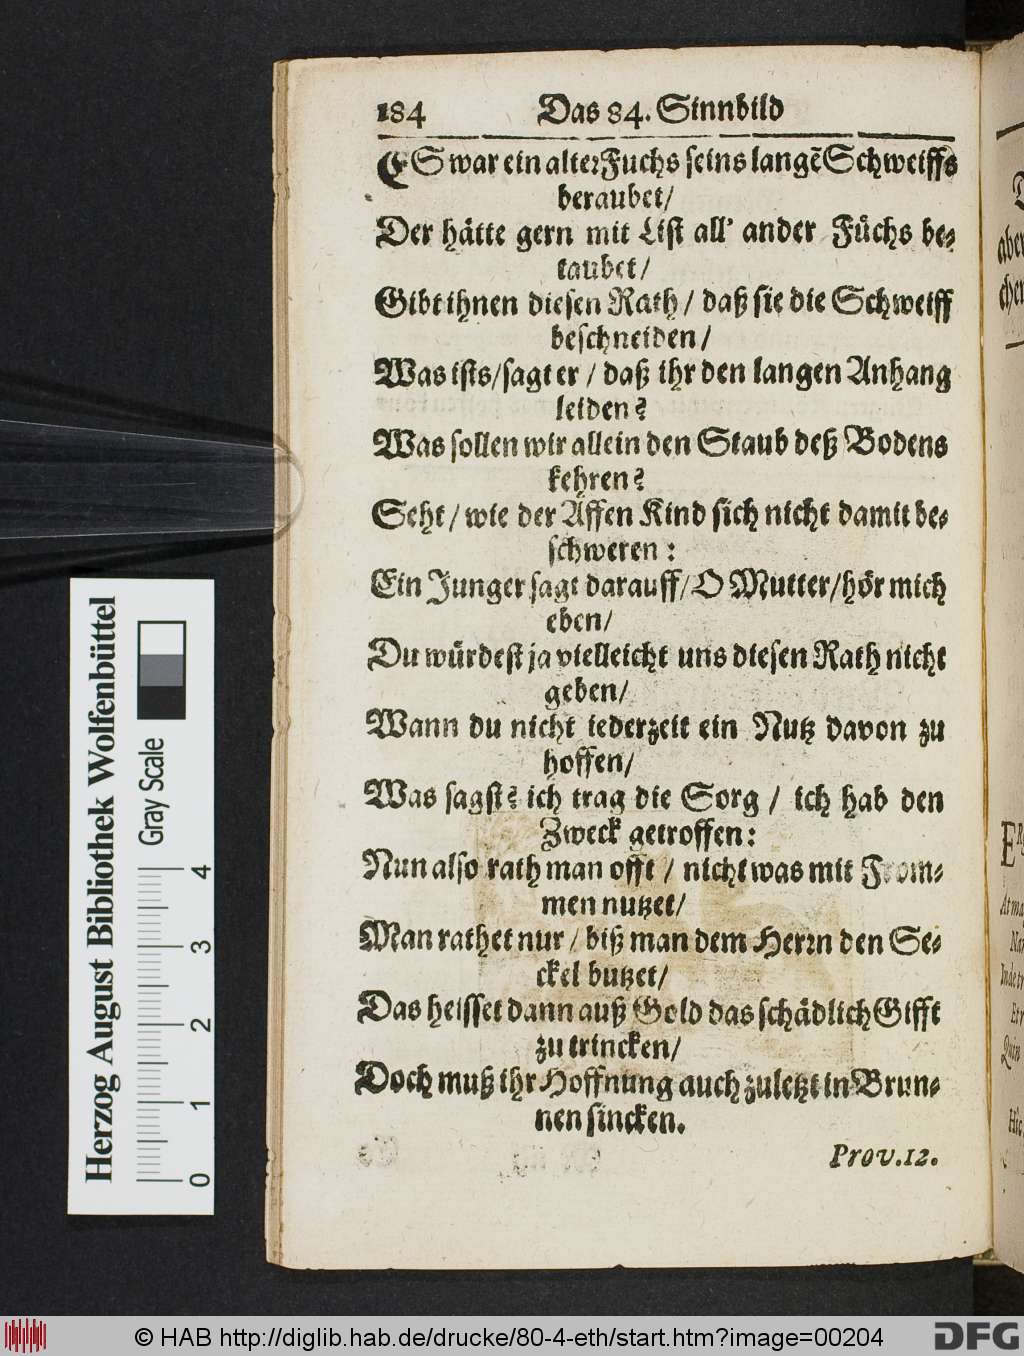 184 Das 84. Sinnbild
ES war ein alter Fuchs seins langẽ Schweiffs
beraubet/
Der hätte gern mit List all' ander Füchs be-
taubet/
Gibt ihnen diesen Rath / daß sie die Schweiff
beschneiden/
Was ists/sagt er / daß ihr den langen Anhang
leiden?
Was sollen wir allein den Staub deß Bodens
kehren?
Seht / wie der Affen Kind sich nicht damit be-
schweren:
Ein Junger sagt darauff/O Mutter/hör mich
eben/
Du würdest ja vielleicht uns diesen Rath nicht
geben/
Wann du nicht iederzeit ein Nutz davon zu
hoffen/
Was sagst? ich trag die Sorg / ich hab den
Zweck getroffen:
Nun also rath man offt / nicht was mit From-
men nutzet/
Man rathet nur / biß man dem Herrn den Se-
ckel butzet/
Das heisset dann auß Gold das schädlich Gifft
zu trincken/
Doch muß ihr Hoffnung auch zuletzt in Brun-
nen sincken.
Prov.12.
Herzog August Bibliothek Wolfenbüttel
Gray Scale
0 1 2 3 4
© HAB http://diglib.hab.de/drucke/80-4-eth/start.htm?image=00204
DFG